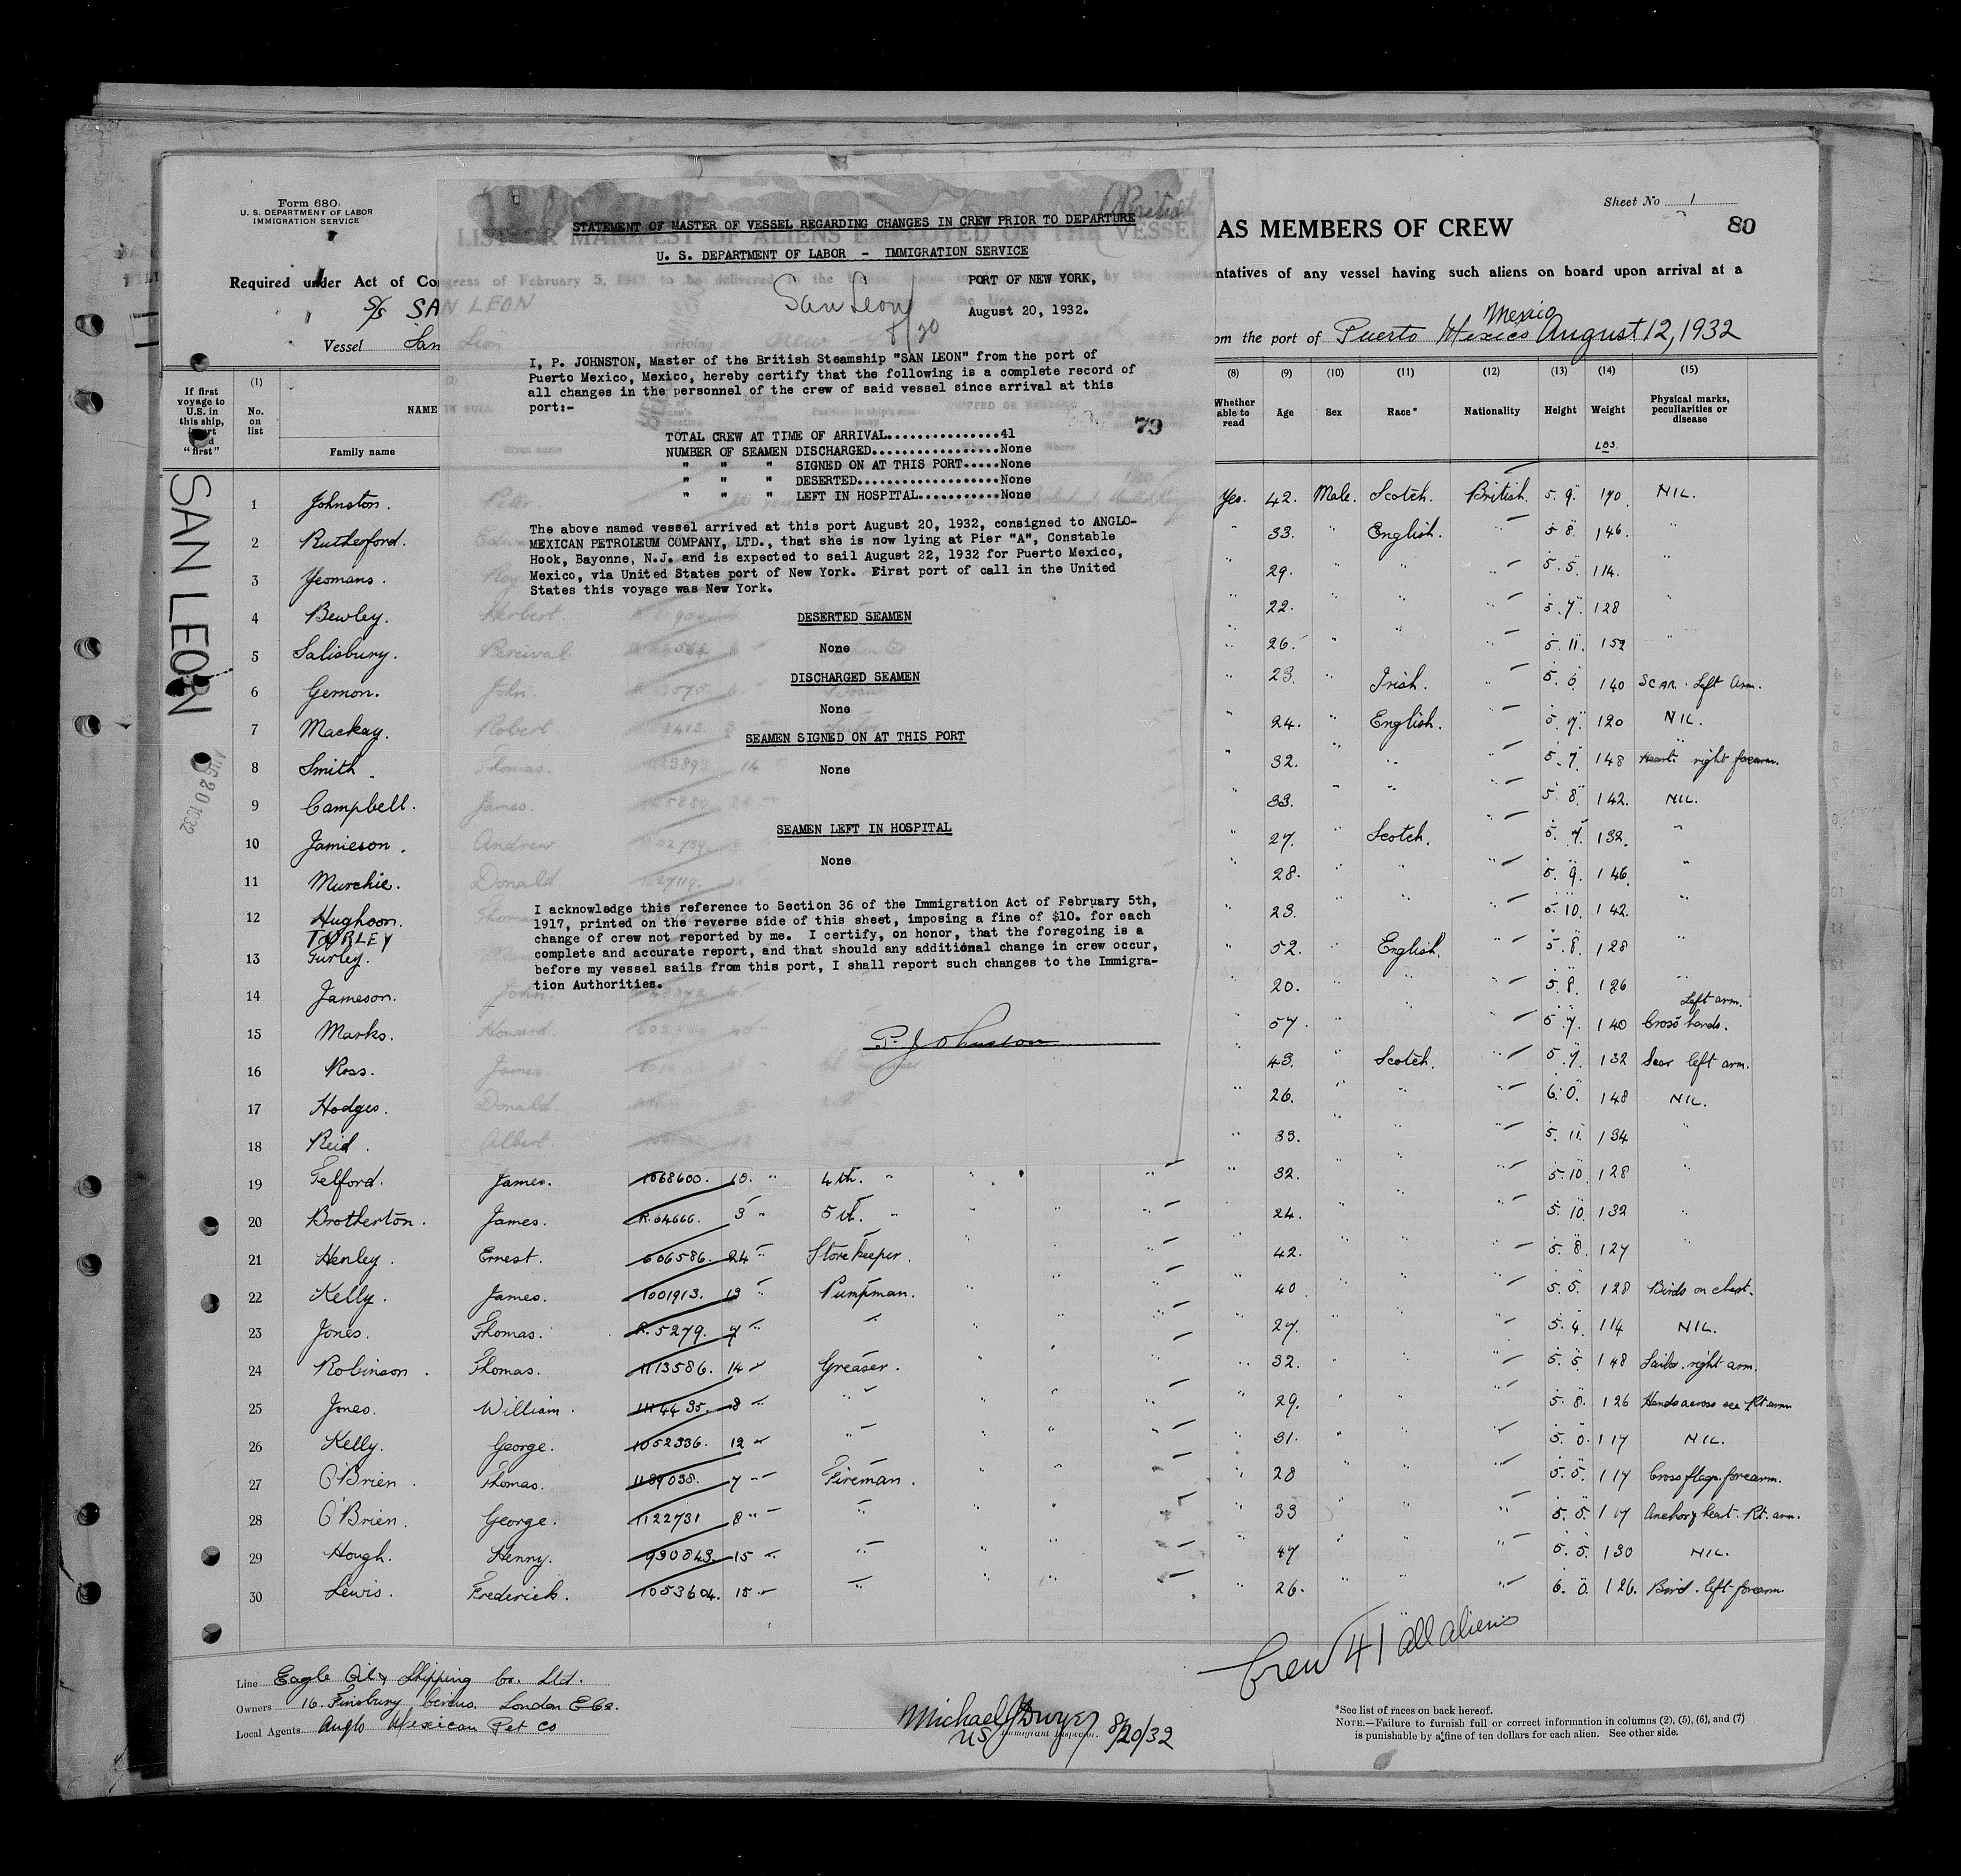 Form 680
U. S. DEPARTMENT OF LABOR
IMMIGRATION SERVICE
Sheet No 1
80
AS MEMBERS OF CREW
Required under Act of Co
ntatives of any vessel having such aliens on board upon arrival at a
S/S SAN LEON
Vessel San Leon
om the port of Puerto Mexico Mexico August 12, 1932
British
STATEMENT OF MASTER OF VESSEL REGARDING CHANGES IN CREW PRIOR TO DEPARTURE
LIST OR MANIFEST OF ALIENS EMPLOYED ON THE VESSEL
U. S. DEPARTMENT OF LABOR - IMMIGRATION SERVICE
San Leon
8/20
PORT OF NEW YORK,
August 20, 1932.
I, P. JOHNSTON, Master of the British Steamship "SAN LEON" from the port of
Puerto Mexico, Mexico, hereby certify that the following is a complete record of
all changes in the personnel of the crew of said vessel since arrival at this
port:-
79
TOTAL CREW AT TIME OF ARRIVAL................41
NUMBER OF SEAMEN DISCHARGED..................None
" " " SIGNED ON AT THIS PORT.....None
" " " DESERTED....................None
" " " LEFT IN HOSPITAL............None
The above named vessel arrived at this port August 20, 1932, consigned to ANGLO-
MEXICAN PETROLEUM COMPANY, LTD., that she is now lying at Pier "A", Constable
Hook, Bayonne, N.J. and is expected to sail August 22, 1932 for Puerto Mexico,
Mexico, via United States port of New York. First port of call in the United
States this voyage was New York.
DESERTED SEAMEN
None
DISCHARGED SEAMEN
None
SEAMEN SIGNED ON AT THIS PORT
None
SEAMEN LEFT IN HOSPITAL
None
I acknowledge this reference to Section 36 of the Immigration Act of February 5th,
1917, printed on the reverse side of this sheet, imposing a fine of $10. for each
change of crew not reported by me. I certify, on honor, that the foregoing is a
complete and accurate report, and that should any additional change in crew occur,
before my vessel sails from this port, I shall report such changes to the Immigra-
tion Authorities.
P. Johnston
SAN LEON
AUG 20 1932
If first voyage to U.S. in this ship, "first"
(1) No. on list
NAME IN FULL
Family name
(8) Whether able to read
(9) Age
(10) Sex
(11) Race*
(12) Nationality
(13) Height
(14) Weight LBS.
(15) Physical marks, peculiarities or disease
1 Johnston. Peter Yes. 42. Male. Scotch. British. 5. 9. 170 NIL.
2 Rutherford. " 33. English. " 5 8. 146. "
3 Yeomans. Roy " 29. " " " 5. 5. 114. "
4 Bewley. Herbert. " 22. " " " 5. 7. 128 "
5 Salisbury. Percival. " 26. " " " 5. 11. 152 "
6 Gernon. John. " 23. " Irish. " 5. 6. 140 SCAR. Left Arm.
7 Mackay. Robert. " 24. " English. " 5. 7. 120 NIL.
8 Smith. Thomas. 14 " 32. " " " 5. 7. 148 Heart right forearm.
9 Campbell. James. " 33. " " " 5 8. 142. NIL.
10 Jamieson. Andrew " 27. " Scotch. " 5. 7. 132. "
11 Murchie. Donald. " 28. " " " 5. 9. 146. "
12 Hughson. Thomas " 23. " " " 5. 10. 142. "
TURLEY
13 Turley. " 52. " English. " 5. 8. 128 "
14 Jameson. John. " 20. " " " 5. 8. 126 "
15 Marks. Howard. 57. " " " 5 7. 140 Cross hands. Left arm.
16 Ross. James. " 43. " Scotch. " 5. 7. 132 Scar left arm.
17 Hodges. Donald. " 26. " " " 6. 0. 148 NIL.
18 Reid. Albert. " 33. " " " 5. 11. 134 "
19 Telford. James. 1068600. 10. " 4th. " " " " 32. " " " 5. 10. 128 "
20 Brotherton. James. R. 64666. 3 " 5th. " " " " 24. " " " 5. 10. 132 "
21 Henley. Ernest. 606586. 24 " Storekeeper. " " " " 42. " " " 5. 8. 127 "
22 Kelly. James. 1001913. 19 " Pumpman. " " " " 40 " " " 5. 5. 128 Birds on chest.
23 Jones. Thomas. R. 5279. 7 " " " " " 27. " " " 5. 4. 114 NIL.
24 Robinson. Thomas. 1113586. 14 " Greaser. " " " " 32. " " " 5. 5. 148 Sailor. right arm.
25 Jones. William. 1114435. 8 " " " " " " 29. " " " 5. 8. 126 Hands across sea Rt arm
26 Kelly. George. 1052336. 12 " " " " " " 31. " " " 5. 0. 117 NIL.
27 O'Brien. Thomas. 1189038. 7 " Fireman. " " " " 28 " " " 5. 5. 117 Cross flags. forearm.
28 O'Brien. George. 1122731 8 " " " " " " 33 " " " 5. 5. 117 Anchor & heart. Rt. arm.
29 Hough. Henry. 930843. 15 " " " " " " 47 " " " 5. 5. 130 NIL.
30 Lewis. Frederick. 1053604. 15 " " " " " " 26. " " " 6. 0. 126. Bird. left forearm
Crew 41 all aliens
Line Eagle Oil & Shipping Co. Ltd.
Owners 16. Finsbury Circus. London EC2.
Local Agents Anglo Mexican Pet Co
Michael J Dwyer 8/20/32
US Immigrant Inspector.
*See list of races on back hereof.
NOTE.—Failure to furnish full or correct information in columns (2), (5), (6), and (7)
is punishable by a fine of ten dollars for each alien. See other side.